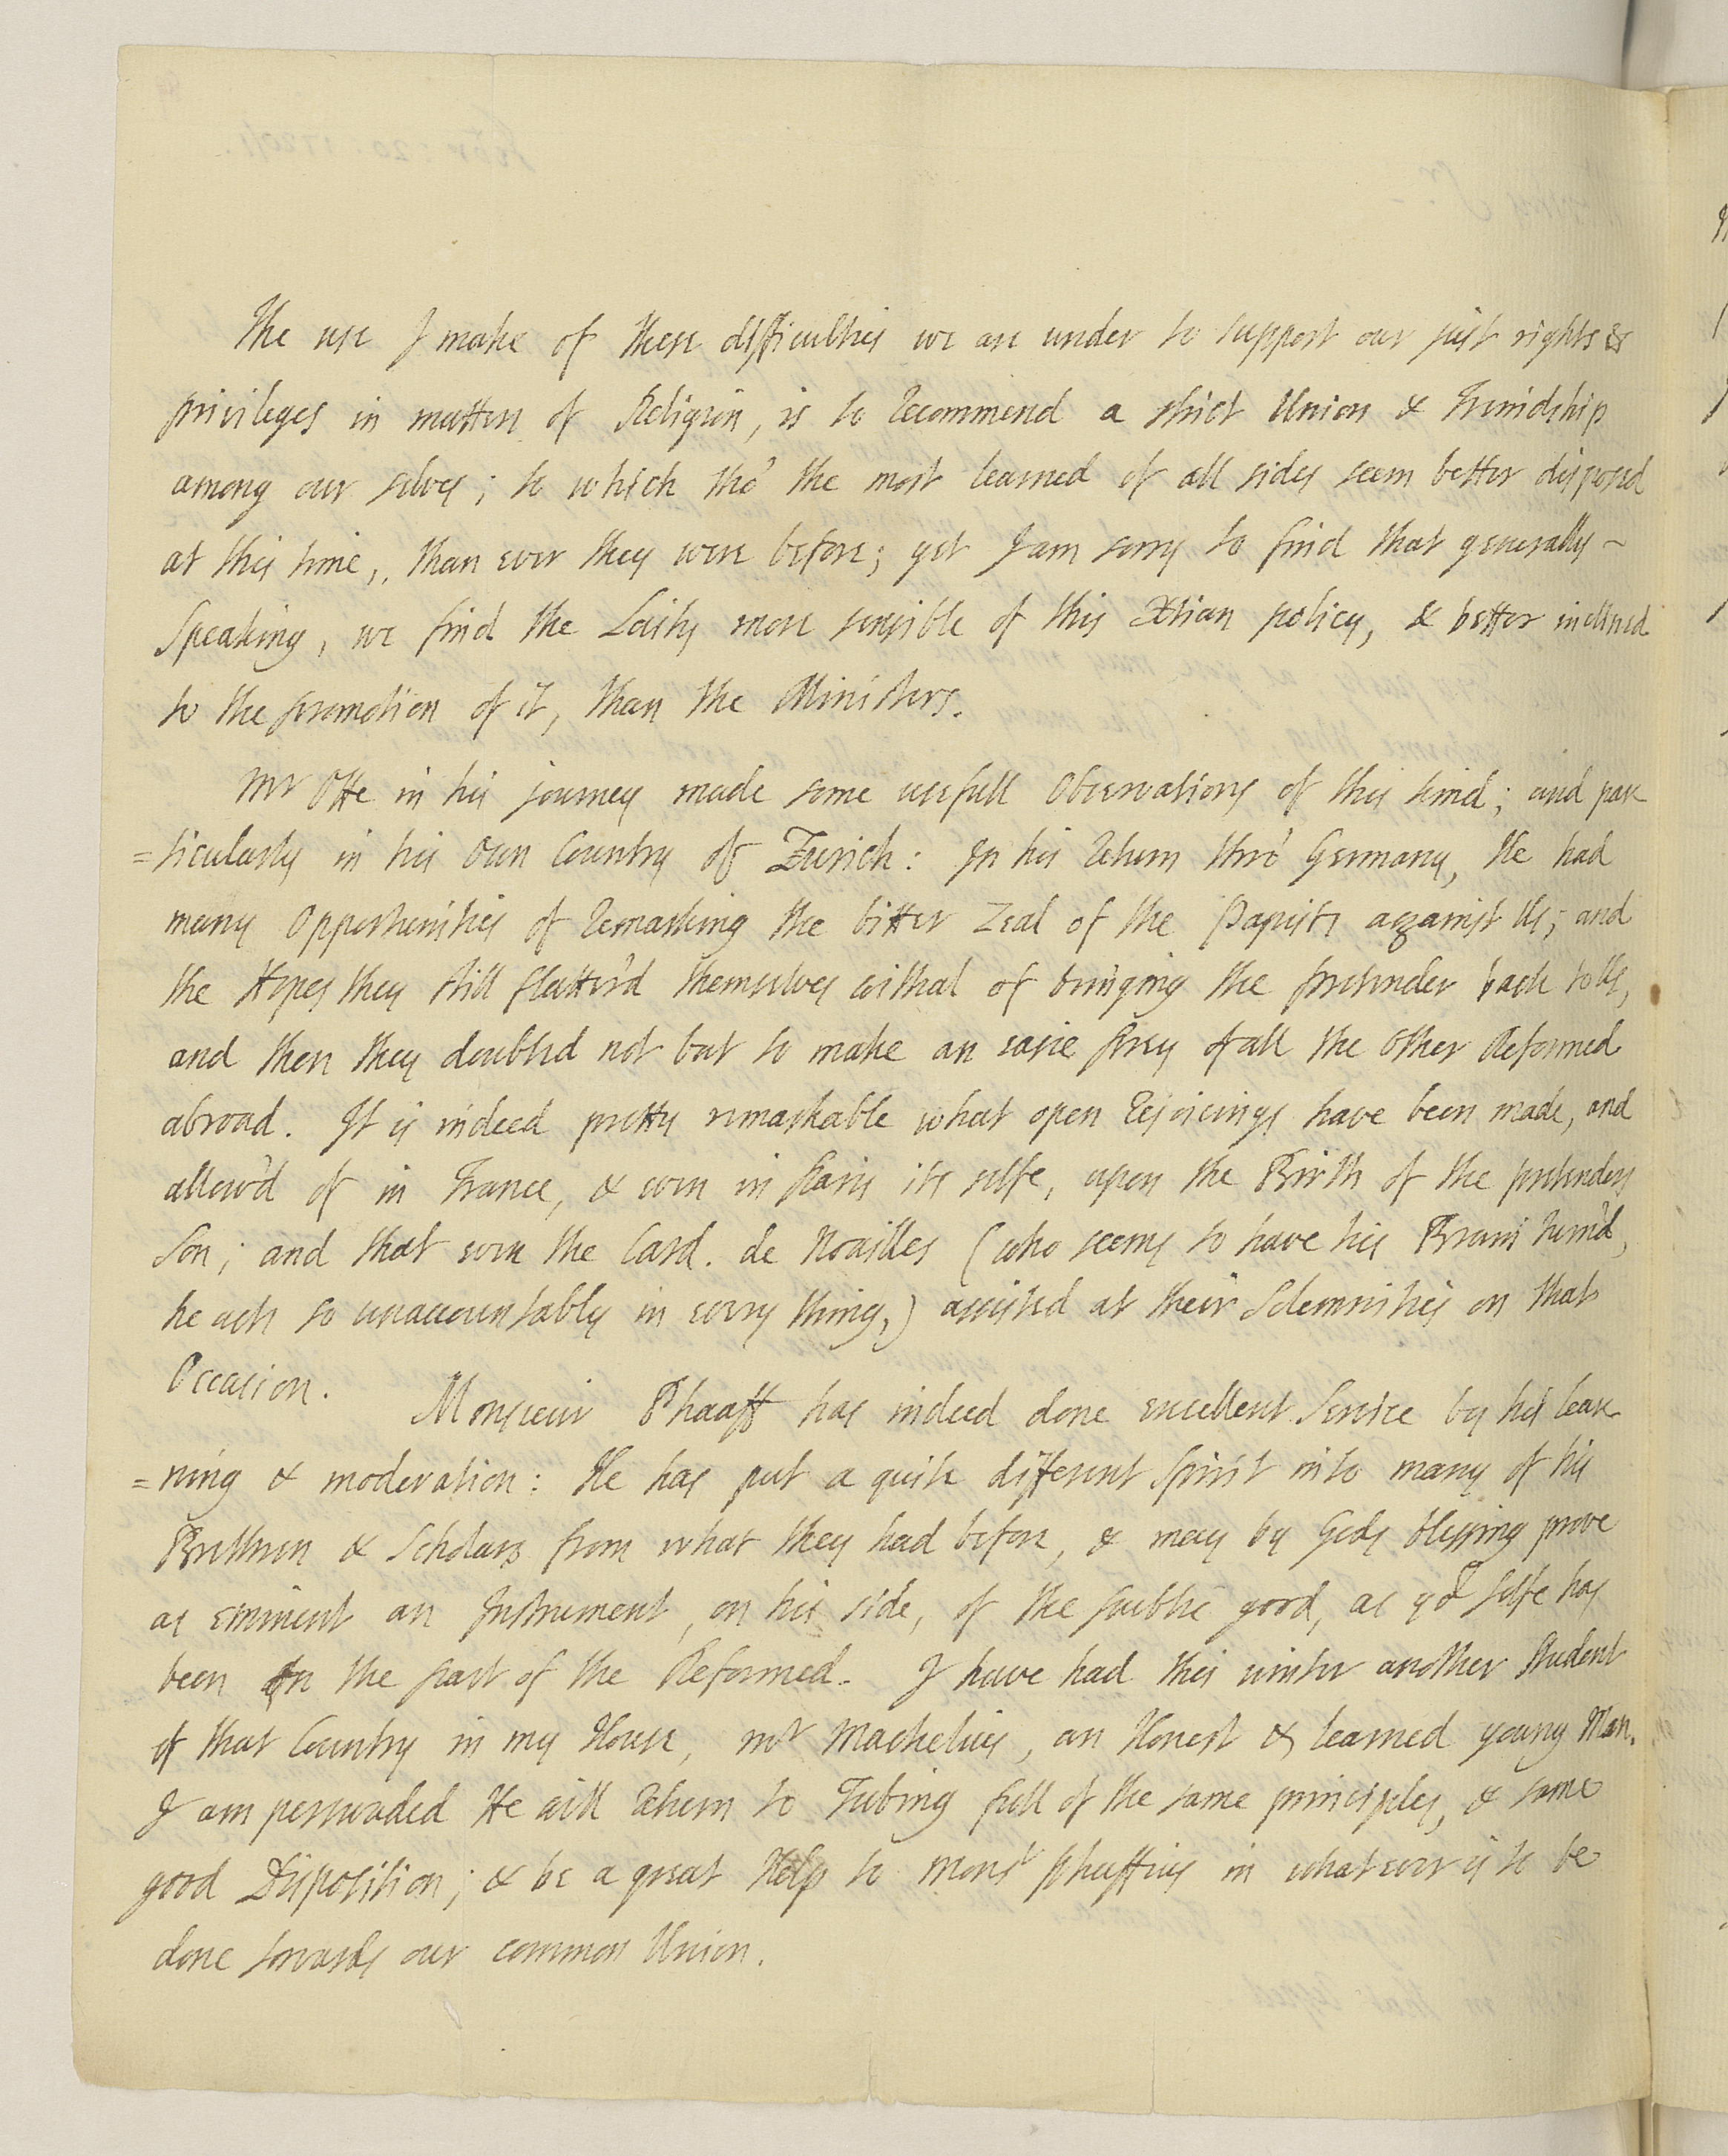 The use I make of these difficulties we are under to support our just rights &
privileges in matters of Religion, is to recommend a strict Union & Freindship
among our selves; to which tho' the most learned of all sides seem better disposed
at this time, than ever they were before; yet I am sorry to find that generally ~
Speaking, we find the Laity more sensible of this Xtian policy, & better inclined
to the promotion of it, than the Ministers.
Mr Otte in his journey made some usefull Observations of this kind; and par
=ticularly in his own Country of Zurich: In his return thro' Germany, He had
many Opportunities of remarking the bitter Zeal of the Papists against Us; and
the Hopes they still flatter'd themselves withal of bringing the pretender back to Us,
and then they doubted not but to make an easie prey of all the Other Reformed
abroad. It is indeed pretty remarkable what open rejoicings have been made, and
allow'd of in France, & even in Paris its selfe, upon the Birth of the pretenders
Son; and that even the Card. de Noailles (who seems to have his Brain turn'd,
he acts so unaccountably in every thing,) assisted at their Solemnities on that
Occasion.
Monsieur Phaaff has indeed done excellent Service by his lear
=ning & moderation: He has put a quite different Spirit into many of his
Brethren & Scholars from what they had before, & may by Gods blessing prove
as eminent an Instrument, on his side, of the public good, as yor selfe has
been on the part of the Reformed. I have had this winter another Student
of that Country in my House, Mr Machelius, an Honest & learned young Man.
I am perswaded He will return to Tubing full of the same principles, & same
good Disposition; & be a great Help to Monsr Phaffius in what ever is to be
done towards our common Union.